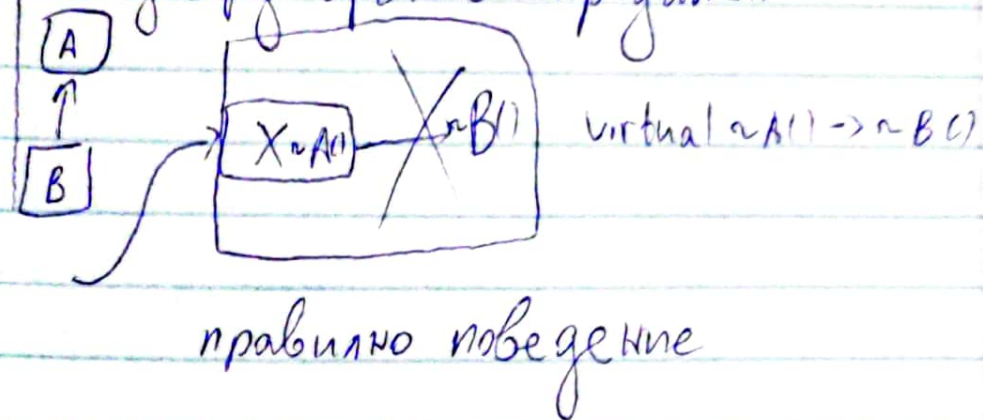 A
B
X ~A()
~B()
virtual ~A() -> ~B()
правилно поведение